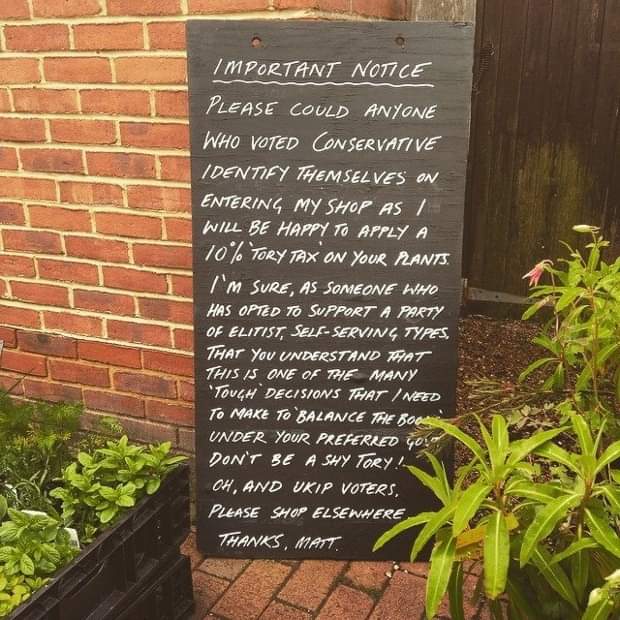 IMPORTANT NOTICE
PLEASE COULD ANYONE
WHO VOTED CONSERVATIVE
IDENTIFY THEMSELVES ON
ENTERING MY SHOP AS I
WILL BE HAPPY TO APPLY A
10% 'TORY TAX' ON YOUR PLANTS.
I'M SURE, AS SOMEONE WHO
HAS OPTED TO SUPPORT A PARTY
OF ELITIST, SELF-SERVING TYPES,
THAT YOU UNDERSTAND THAT
THIS IS ONE OF THE MANY
'TOUGH' DECISIONS THAT I NEED
TO MAKE TO 'BALANCE THE
UNDER YOUR PREFERRED
DON'T BE A SHY TORY!
OH, AND UKIP VOTERS,
PLEASE SHOP ELSEWHERE
THANKS, MATT.